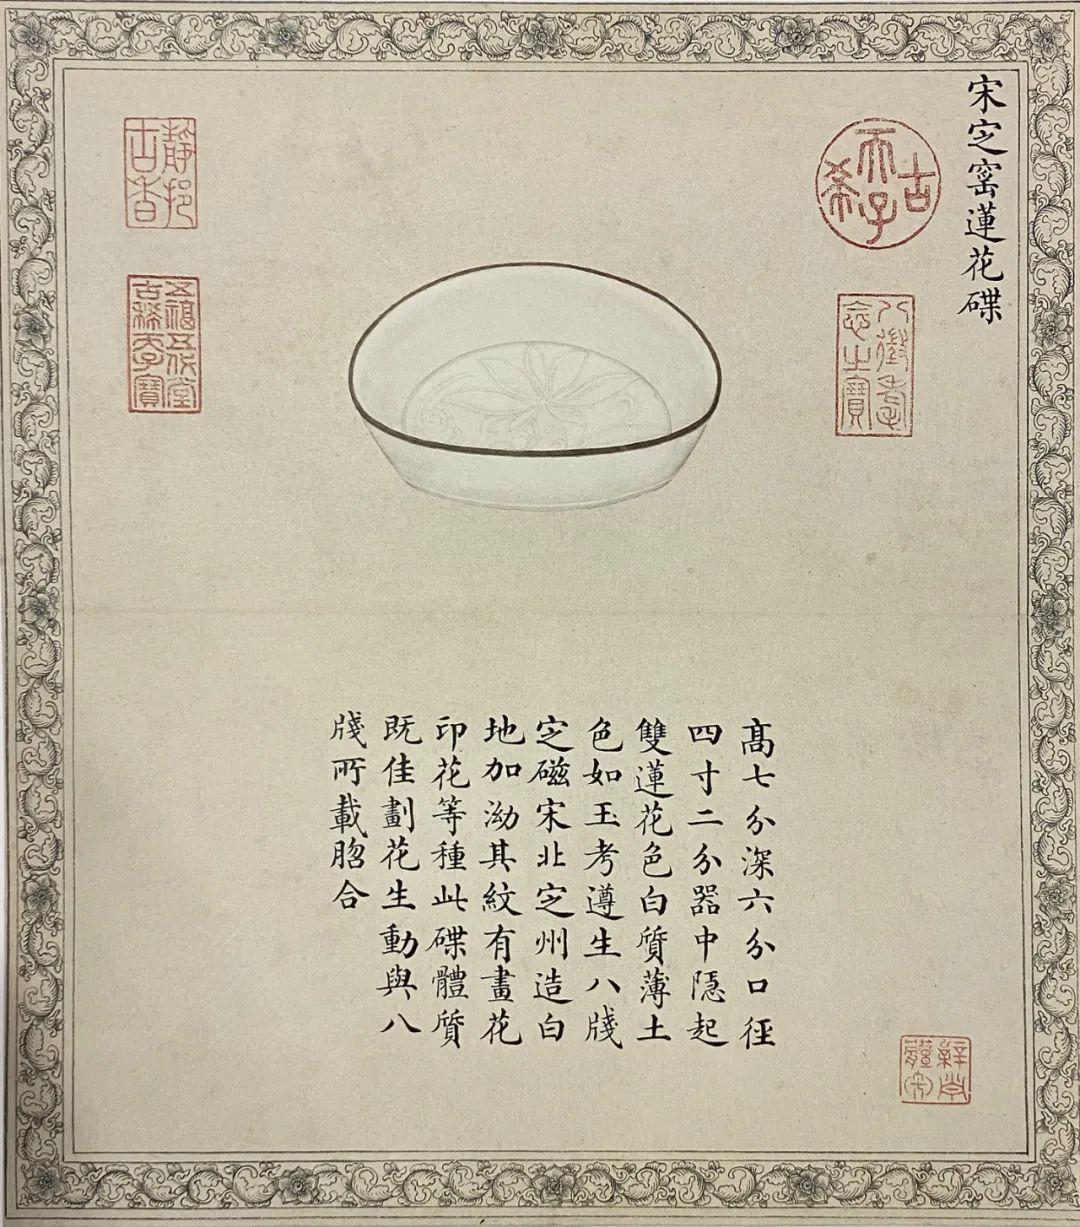 宋㝎窰蓮花碟
古希天子
八徵耄念之寶
高七分深六分口徑
四寸二分器中隱起
雙蓮花色白質薄土
色如玉考遵生八牋
㝎磁宋北㝎州造白
地加泑其紋有畫花
印花等種此碟體質
既佳劃花生動與八
牋所載脗合
靜挹古香
五福五代堂古稀天子寶